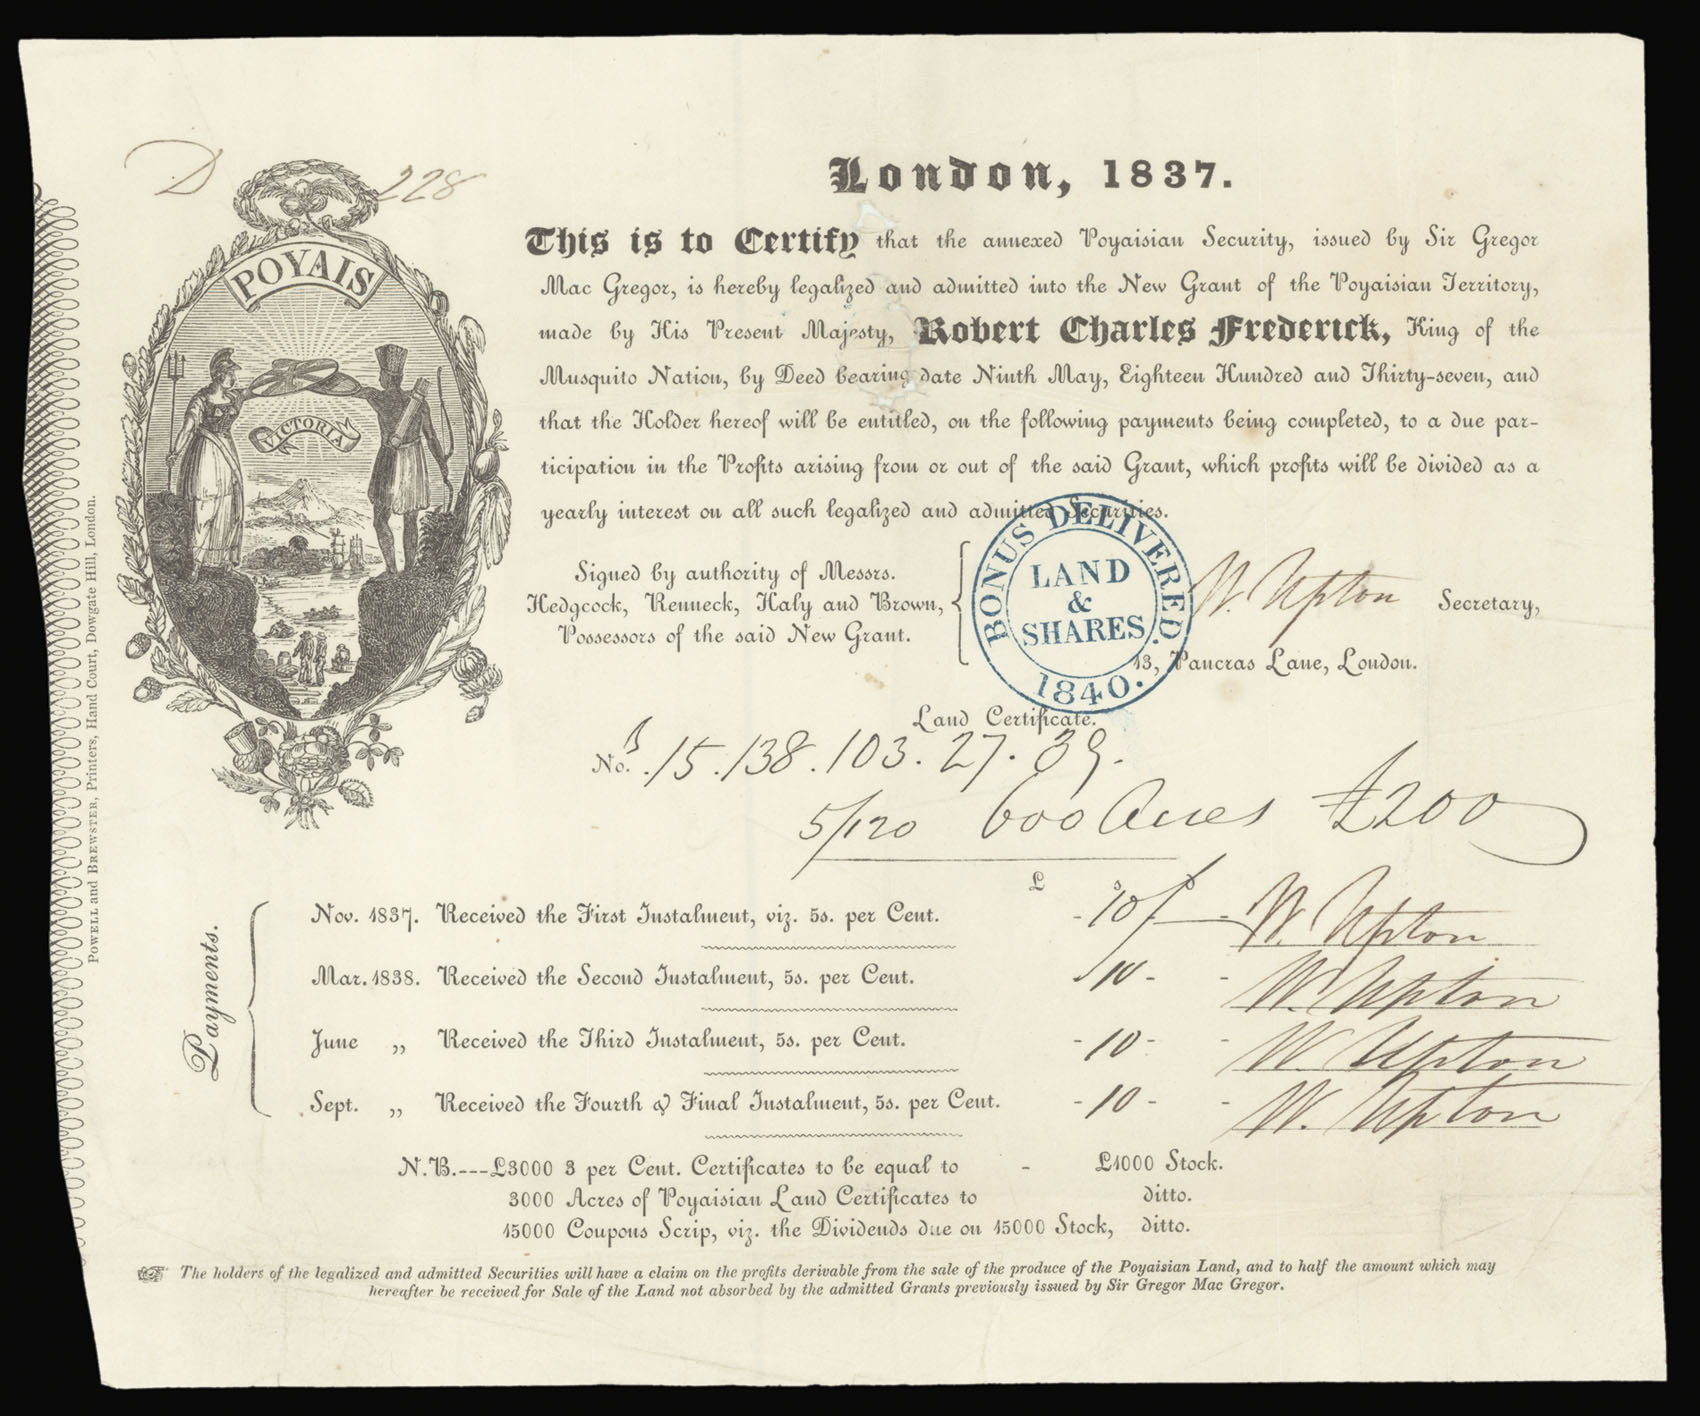 D 228
POYAIS
VICTORIA
POWELL and BREWSTER, Printers, Hand Court, Dowgate Hill, London.
London, 1837.
This is to Certify that the annexed Poyaisian Security, issued by Sir Gregor
Mac Gregor, is hereby legalized and admitted into the New Grant of the Poyaisian Territory,
made by His Present Majesty, Robert Charles Frederick, King of the
Musquito Nation, by Deed bearing date Ninth May, Eighteen Hundred and Thirty-seven, and
that the Holder hereof will be entitled, on the following payments being completed, to a due par-
ticipation in the Profits arising from or out of the said Grant, which profits will be divided as a
yearly interest on all such legalized and admitted Securities.
Signed by authority of Messrs.
Hedgcock, Renneck, Haly and Brown,
Possessors of the said New Grant.
BONUS DELIVERED.
LAND
&
SHARES
1840.
W. Upton Secretary,
13, Pancras Lane, London.
Land Certificate.
No. 15.138.103.27.39.
5/120 600 Acres £200
£ s d
Payments.
Nov. 1837. Received the First Instalment, viz. 5s. per Cent. - 10/ - W. Upton
Mar. 1838. Received the Second Instalment, 5s. per Cent. 10 - - W. Upton
June „ Received the Third Instalment, 5s. per Cent. - 10 - - W. Upton
Sept. „ Received the Fourth & Final Instalment, 5s. per Cent. - 10 - - W. Upton
N.B.---£3000 3 per Cent. Certificates to be equal to - £1000 Stock.
3000 Acres of Poyaisian Land Certificates to ditto.
15000 Coupons Scrip, viz. the Dividends due on 15000 Stock, ditto.
The holders of the legalized and admitted Securities will have a claim on the profits derivable from the sale of the produce of the Poyaisian Land, and to half the amount which may
hereafter be received for Sale of the Land not absorbed by the admitted Grants previously issued by Sir Gregor Mac Gregor.